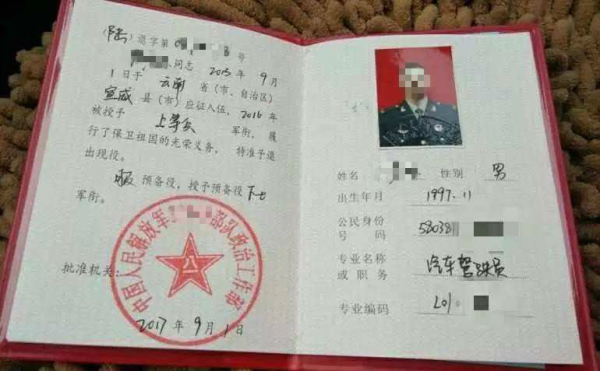 (陆) 退字第09 3号
同志 2015年9月
1日于云南省(市、自治区)
宣威县(市)应征入伍, 2016年
被授予上等兵军衔, 履
行了保卫祖国的光荣义务, 特准予退
出现役。
服预备役, 授予预备役下士
军衔。
中国人民解放军 部队政治工作部
批准机关:
2017年9月1日
姓名 性别 男
出生年月 1997.11
公民身份 号码 53038
专业名称 或职务 汽车驾驶员
专业编码 L01